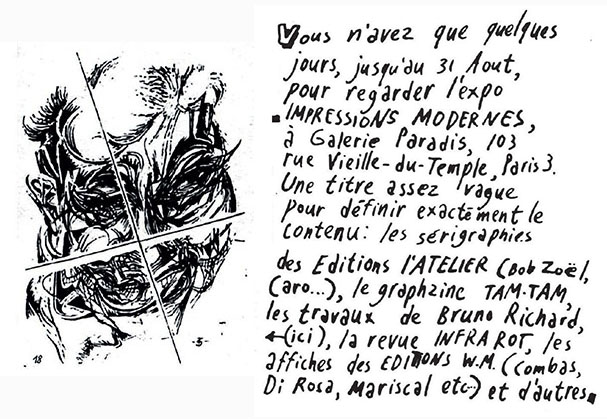 Vous n'avez que quelques
jours, jusqu'au 31 Aout,
pour regarder l'expo
IMPRESSIONS MODERNES,
à Galerie Paradis, 103
rue Vieille-du-Temple, Paris 3.
Une titre assez vague
pour définir exactement le
contenu: les sérigraphies
des Editions l'ATELIER (Bob Zoël,
Caro...), le graphzine TAM-TAM,
les travaux de Bruno Richard,
←(ici), la revue INFRAROT, les
affiches des EDITIONS W.M. (Combas,
Di Rosa, Mariscal etc.) et d'autres.
18
-5-